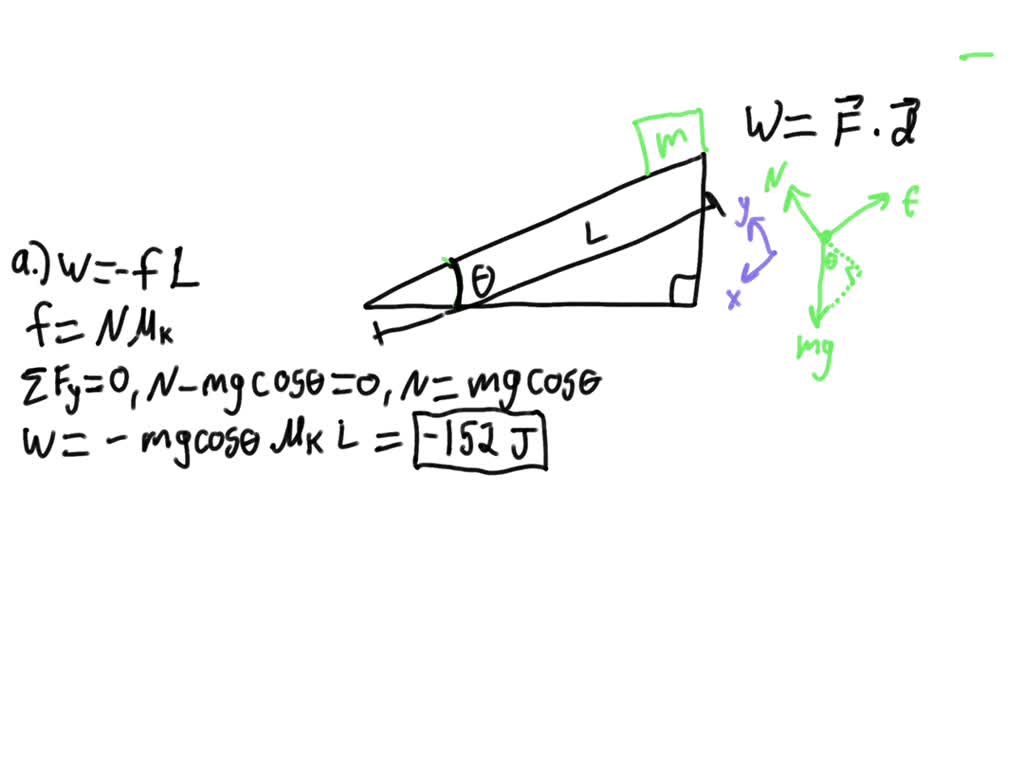 W = F⃗ · d⃗
m
N
f
y
L
θ
θ
x
mg
a.) W = -fL
f = Nμₖ
ΣFy = 0, N - mg cosθ = 0, N = mg cosθ
W = - mg cosθ μₖ L = -152 J